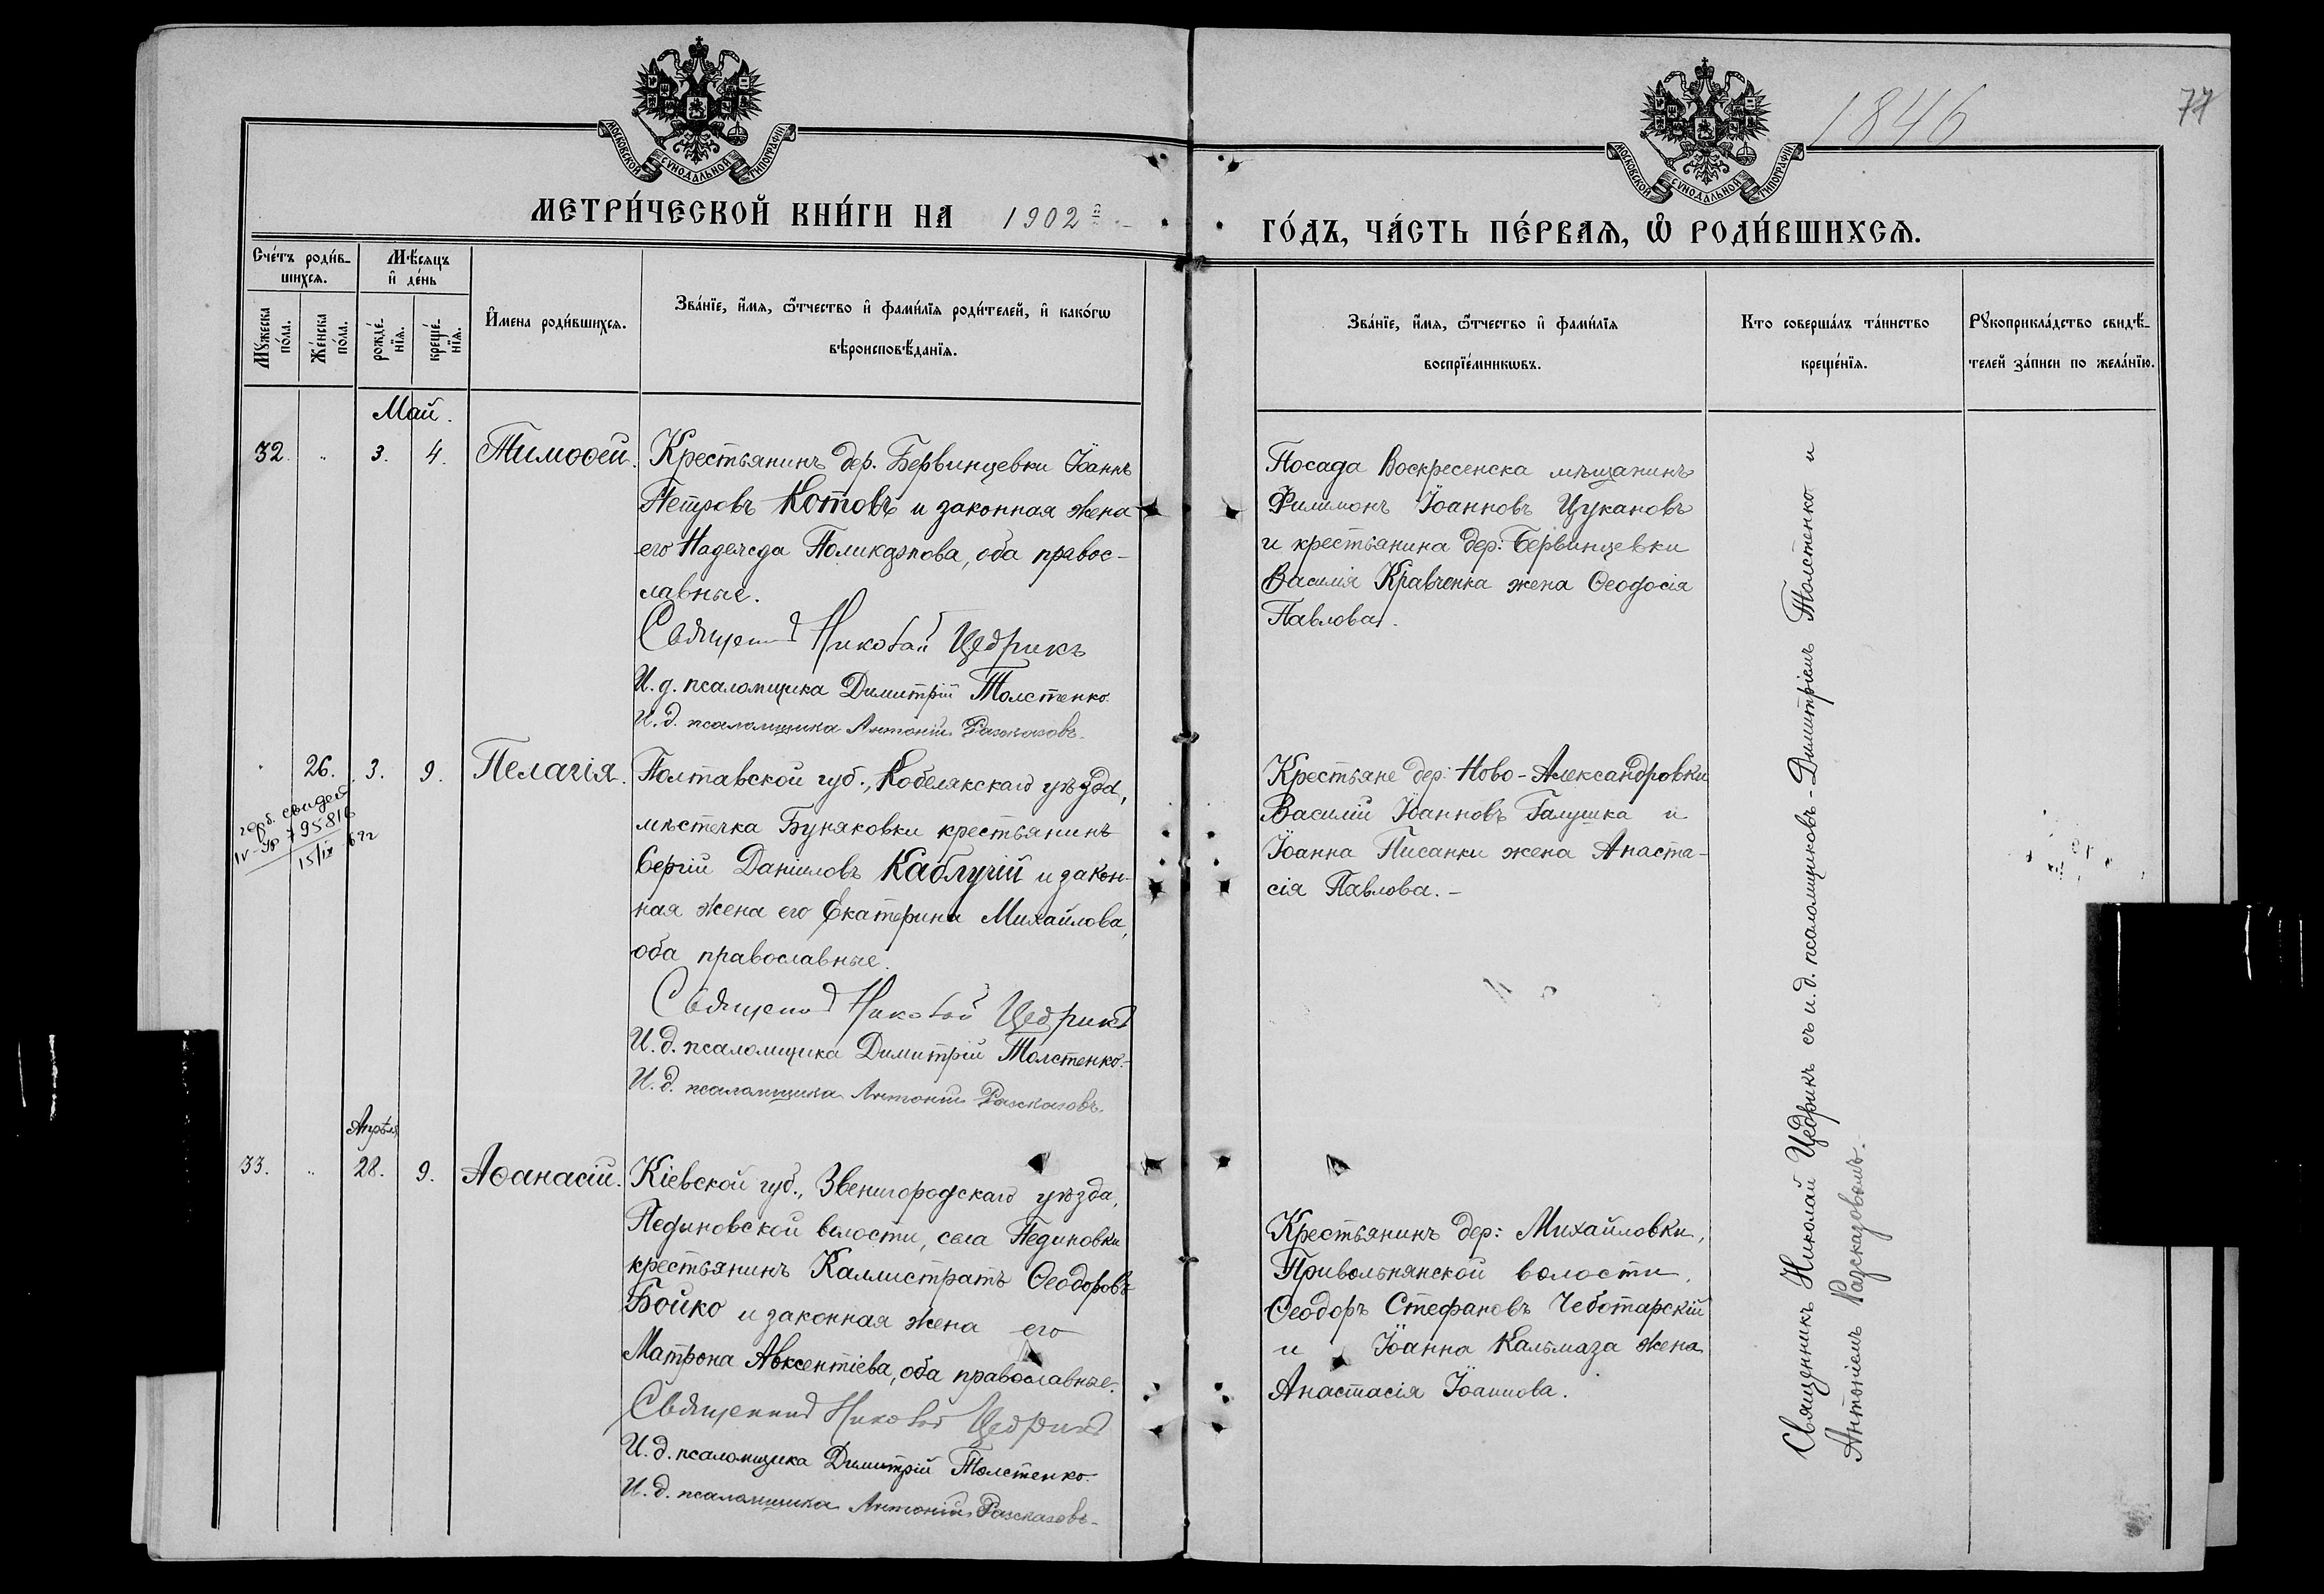 1846
77
МОСКОВСКОЙ СѴНОДАЛЬНОЙ ТИПОГРАФІИ
МОСКОВСКОЙ СѴНОДАЛЬНОЙ ТИПОГРАФІИ
МЕТРИ́ЧЕСКОЙ КНИ́ГИ НА 1902 г.
ГО́ДЪ, ЧА́СТЬ ПЕ́РВАѦ, Ѡ РОДИ́ВШИХСѦ.
Сче́тъ роди́в-
шихсѧ.
Мѣ́сяцъ
и҆ де́нь
Мꙋ́жеска
по́ла.
Же́нска
по́ла.
рожде́-
нїѧ.
креще́-
нїѧ.
И҆мена роди́вшихсѧ.
Зва́нїе, и҆́мѧ, ѻ҆́тчество и҆ фами́лїѧ роди́телей, и҆ како́гѡ
вѣроисповѣ́данїѧ.
Зва́нїе, и҆́мѧ, ѻ҆́тчество и҆ фами́лїѧ
воспрїе́мникѡвъ.
Кто соверша́лъ та́инство
креще́нїѧ.
Рꙋкоприкла́дство свидѣ́-
телей за́писи по жела́нїю.
Май.
32. " 3. 4. Тимоѳей.
Крестьянинъ дер. Бервинцевки Іоаннъ
Петровъ Котовъ и законная жена
его Надежда Поликарпова, оба правос-
лавные.
Священникъ Николай Цедрикъ
И. д. псаломщика Димитрій Толстенко.
И. д. псаломщика Антоній Разсказовъ.
Посада Воскресенска мѣщанинъ
Филимонъ Іоанновъ Цукановъ
и крестьянина дер: Бервинцевки
Василія Кравченка жена Ѳеодосія
Павлова.
" 26. 3. 9. Пелагія.
герб. свидет
IV-УР 795816
15/IX 69г
Полтавской губ., Кобелякскаго уѣзда,
мѣстечка Буняковки крестьянинъ
Сергій Даніиловъ Каблучій и закон-
ная жена его Екатерина Михайлова,
оба православные.
Священникъ Николай Цедрикъ
И. д. псаломщика Димитрій Толстенко.
И. д. псаломщика Антоній Разсказовъ.
Крестьяне дер: Ново-Александровки
Василій Іоанновъ Галушка и
Іоанна Писанки жена Анаста-
сія Павлова. -
Апрѣля
33. " 28. 9. Аѳанасій.
Кіевской губ., Звенигородскаго уѣзда,
Пединовской волости, села Пединовки
крестьянинъ Каллистратъ Ѳеодоровъ
Бойко и законная жена его
Матрона Авксентіева, оба православные.
Священникъ Николай Цедрикъ
И. д. псаломщика Димитрій Толстенко.
И. д. псаломщика Антоній Разсказовъ.
Крестьянинъ дер: Михайловки,
Привольнянской волости,
Ѳеодоръ Стефановъ Чеботарскій
и Іоанна Кальмаза жена
Анастасія Іоаннова.
Священникъ Николай Цедрикъ съ и. д. псаломщиковъ - Димитріемъ Толстенко и
Антоніемъ Разсказовымъ.